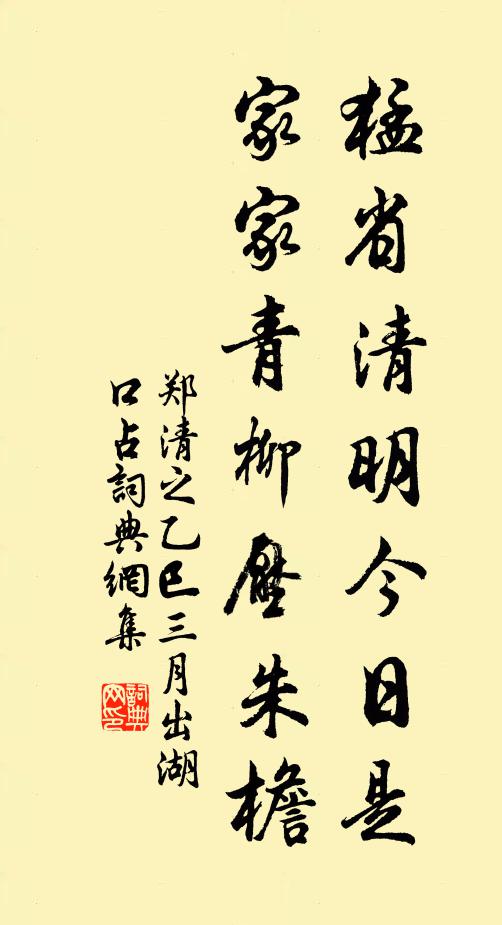 猛省清明今日是
家家青柳壓朱檐
郑清之乙巳三月出湖
口占詞典網集
詞典
网印